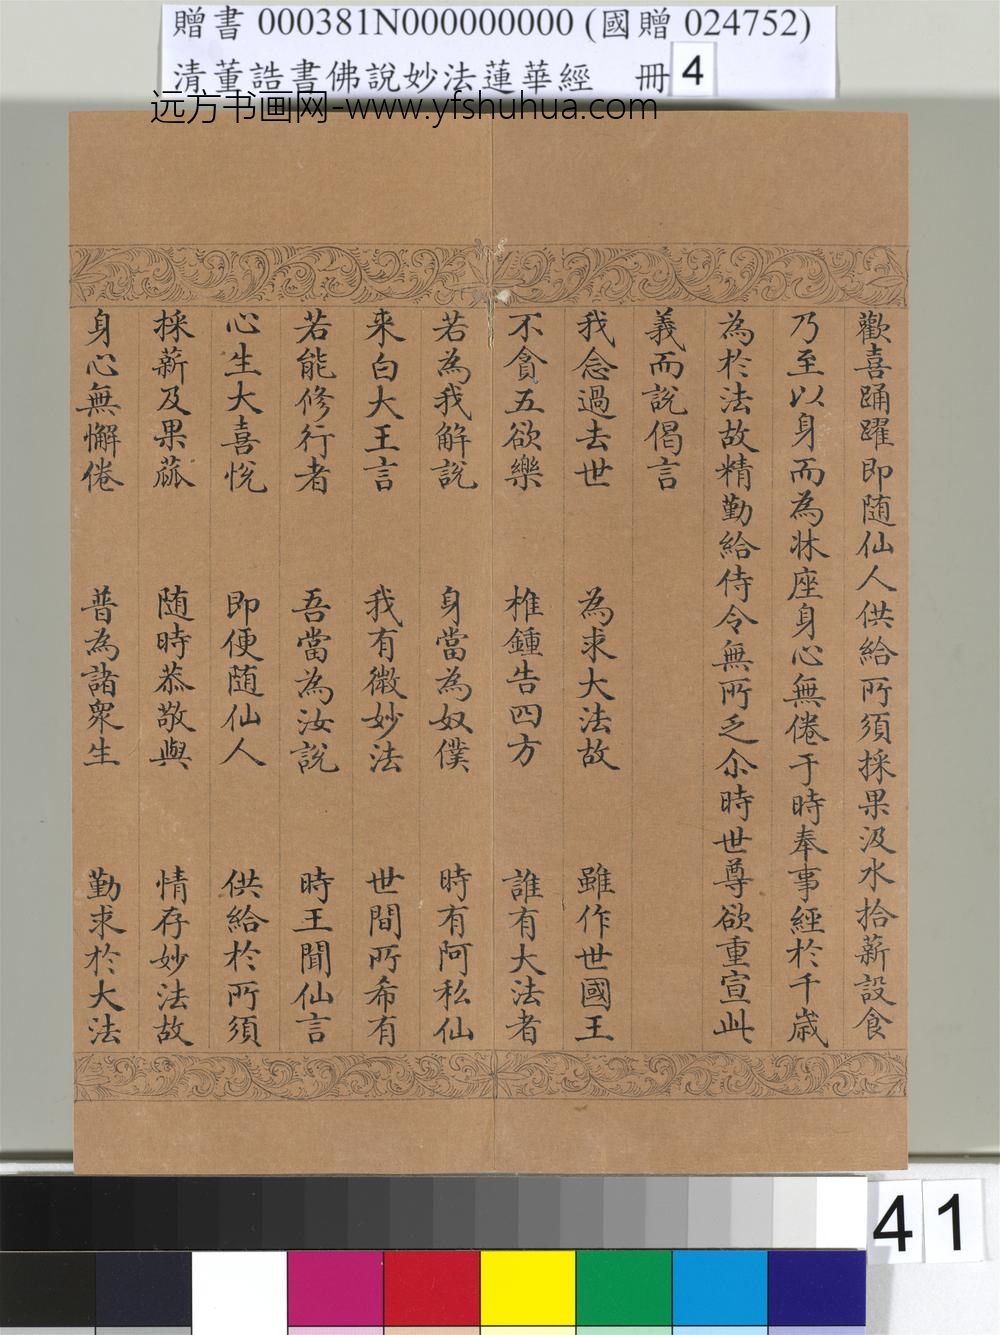 贈書 000381N000000000 (國贈 024752)
清董誥書佛說妙法蓮華經 冊 4
远方书画网-www.yfshuhua.com
歡喜踊躍即随仙人供給所須採果汲水拾薪設食
乃至以身而為牀座身心無倦于時奉事經於千歲
為於法故精勤給侍令無所乏尒時世尊欲重宣此
義而說偈言
我念過去世 為求大法故 雖作世國王
不貪五欲樂 椎鍾告四方 誰有大法者
若為我解說 身當為奴僕 時有阿私仙
來白大王言 我有微妙法 世間所希有
若能修行者 吾當為汝說 時王聞仙言
心生大喜悅 即便随仙人 供給於所須
採薪及果蓏 随時恭敬與 情存妙法故
身心無懈倦 普為諸眾生 勤求於大法
41